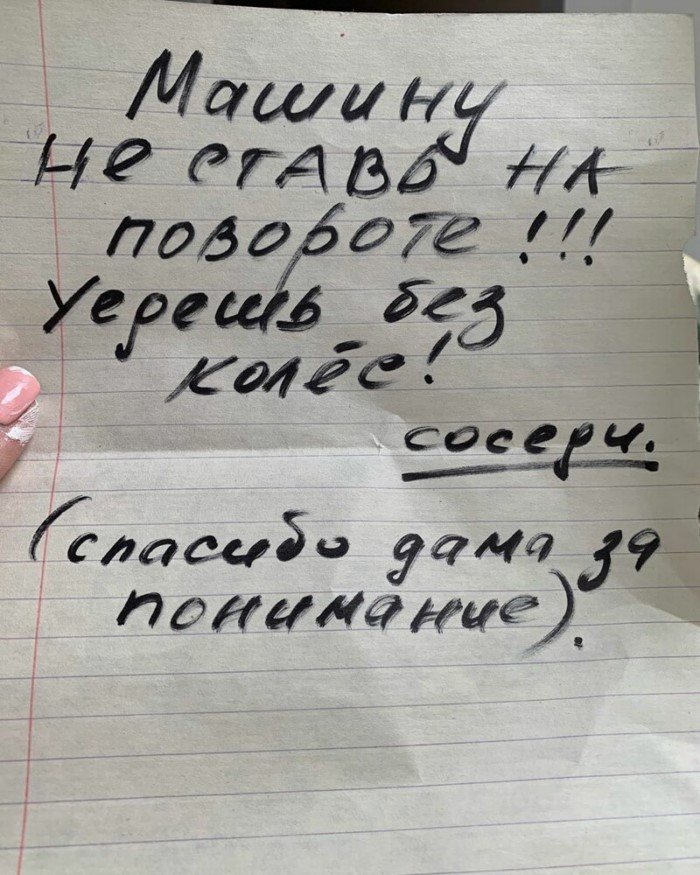 Машину
не ставь на
повороте!!!
Уедешь без
колёс!
соседи.
(спасибо дама за
понимание).